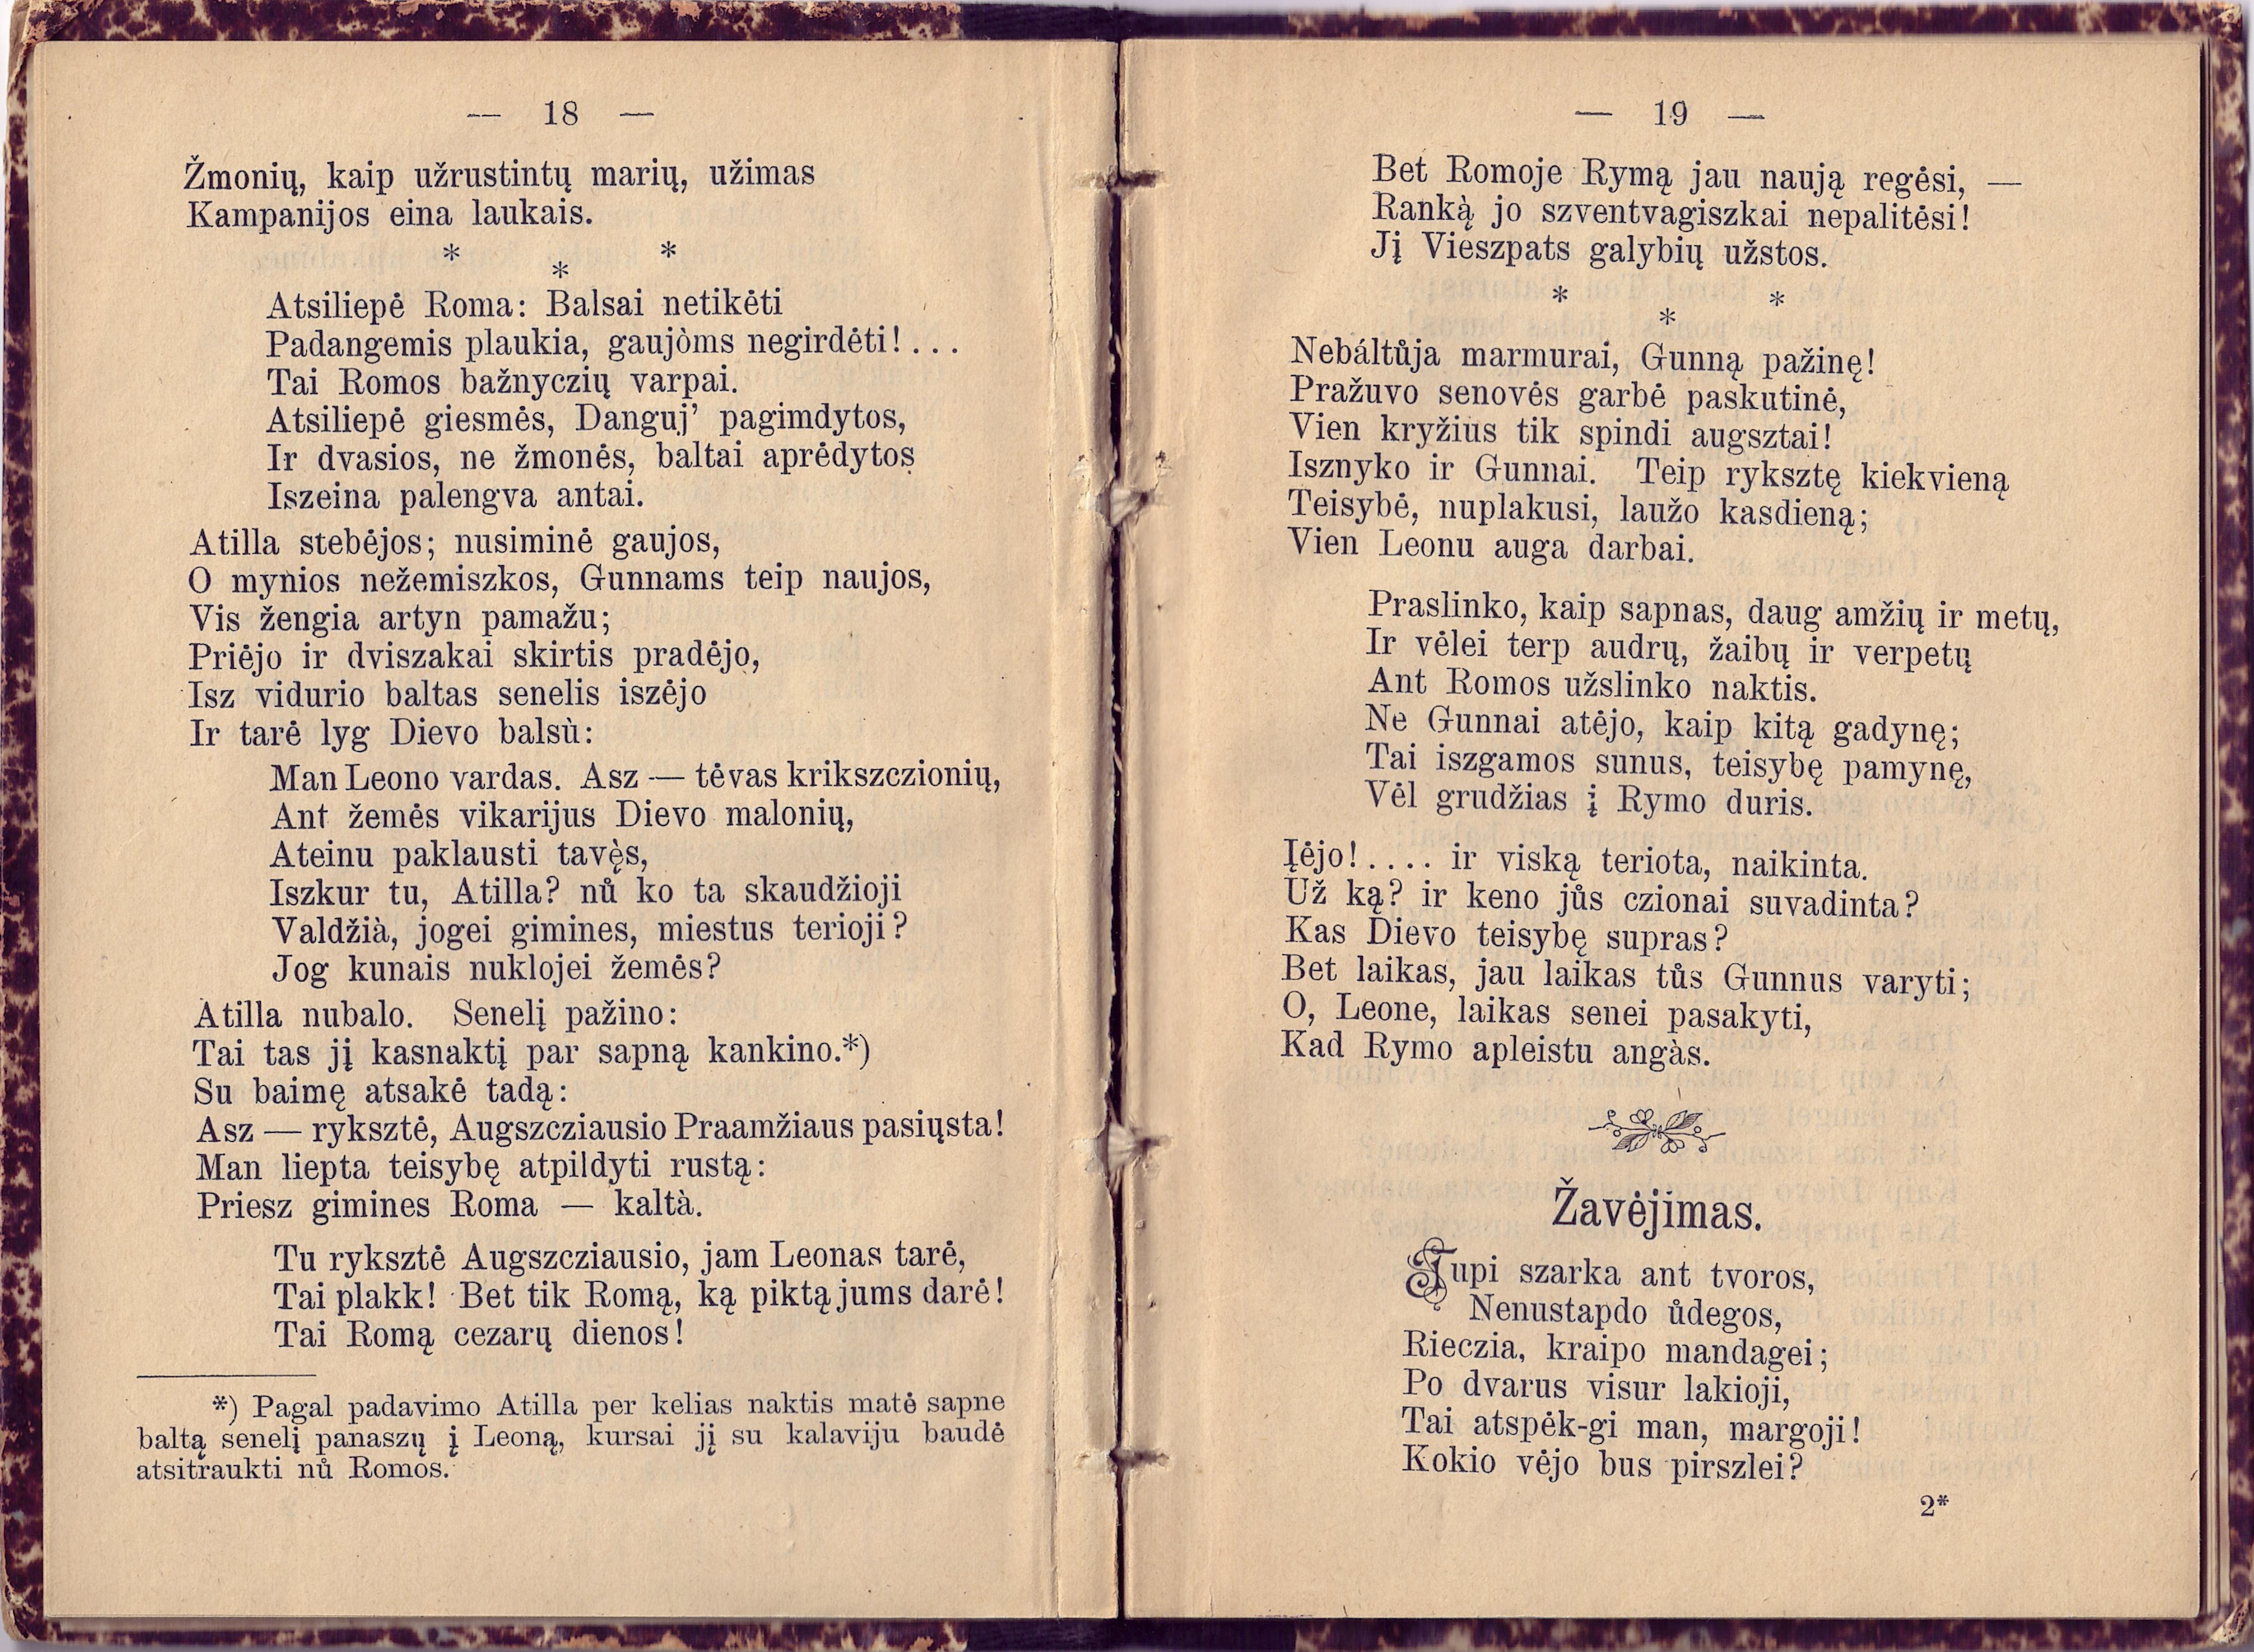 — 18 —
Žmonių, kaip užrustintų marių, užimas
Kampanijos eina laukais.
* * *
Atsiliepė Roma: Balsai netikėti
Padangemis plaukia, gaujòms negirdėti! . . .
Tai Romos bažnyczių varpai.
Atsiliepė giesmės, Danguj’ pagimdytos,
Ir dvasios, ne žmonės, baltai aprėdytos
Iszeina palengva antai.
Atilla stebėjos; nusiminė gaujos,
O mynios nežemiszkos, Gunnams teip naujos,
Vis žengia artyn pamažu;
Priėjo ir dviszakai skirtis pradėjo,
Isz vidurio baltas senelis iszėjo
Ir tarė lyg Dievo balsù:
Man Leono vardas. Asz — tėvas krikszczionių,
Ant žemės vikarijus Dievo malonių,
Ateinu paklausti tavę̀s,
Iszkur tu, Atilla? nů ko ta skaudžioji
Valdžià, jogei gimines, miestus terioji?
Jog kunais nuklojei žemės?
Atilla nubalo. Senelį pažino:
Tai tas jį kasnaktį par sapną kankino.*)
Su baimę atsakė tadą:
Asz — ryksztė, Augszcziausio Praamžiaus pasiųsta!
Man liepta teisybę atpildyti rustą:
Priesz gimines Roma — kaltà.
Tu ryksztė Augszcziausio, jam Leonas tarė,
Tai plakk! Bet tik Romą, ką piktą jums darė!
Tai Romą cezarų dienos!
*) Pagal padavimo Atilla per kelias naktis matė sapne
baltą senelį panaszų į Leoną, kursai jį su kalaviju baudė
atsitraukti nů Romos.
— 19 —
Bet Romoje Rymą jau naują regėsi, —
Ranką̀ jo szventvagiszkai nepalitėsi!
Jį Vieszpats galybių užstos.
* * *
Nebáltůja marmurai, Gunną pažinę!
Pražuvo senovės garbė paskutinė,
Vien kryžius tik spindi augsztai!
Isznyko ir Gunnai. Teip rykszTę kiekvieną
Teisybė, nuplakusi, laužo kasdieną;
Vien Leonu auga darbai.
Praslinko, kaip sapnas, daug amžių ir metų,
Ir vėlei terp audrų, žaibų ir verpetų
Ant Romos užslinko naktis.
Ne Gunnai atėjo, kaip kitą gadynę;
Tai iszgamos sunus, teisybę pamynę,
Vėl grudžias į Rymo duris.
Įėjo! . . . . ir viską teriota, naikinta.
Už ką? ir keno jůs czionai suvadinta?
Kas Dievo teisybę supras?
Bet laikas, jau laikas tůs Gunnus varyti;
O, Leone, laikas senei pasakyti,
Kad Rymo apleistu angàs.
Žavėjimas.
Tupi szarka ant tvoros,
Nenustapdo ůdegos,
Rieczia, kraipo mandagei;
Po dvarus visur lakioji,
Tai atspėk-gi man, margoji!
Kokio vėjo bus pirszlei?
2*